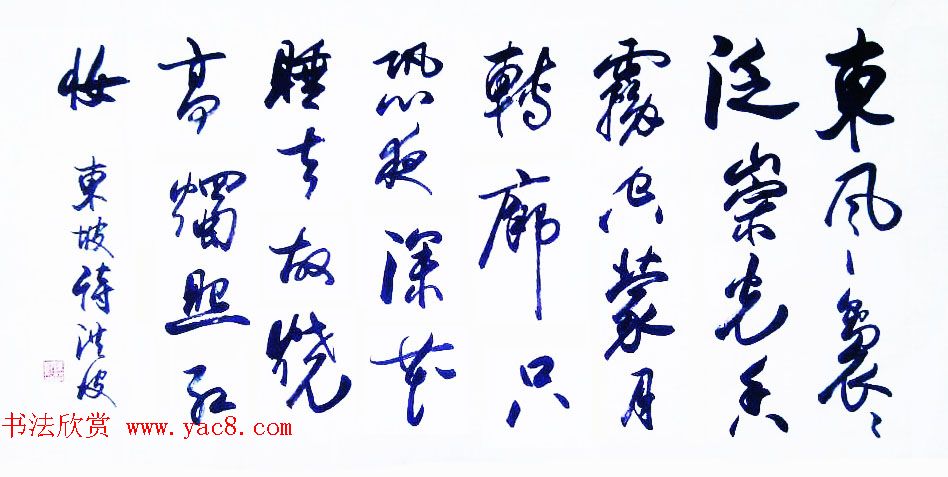 東風裊〻
泛崇光香
霧空蒙月
轉廊只
恐夜深花
睡去故燒
高燭照紅
妝
東坡詩 洪
书法欣赏 www.yac8.com